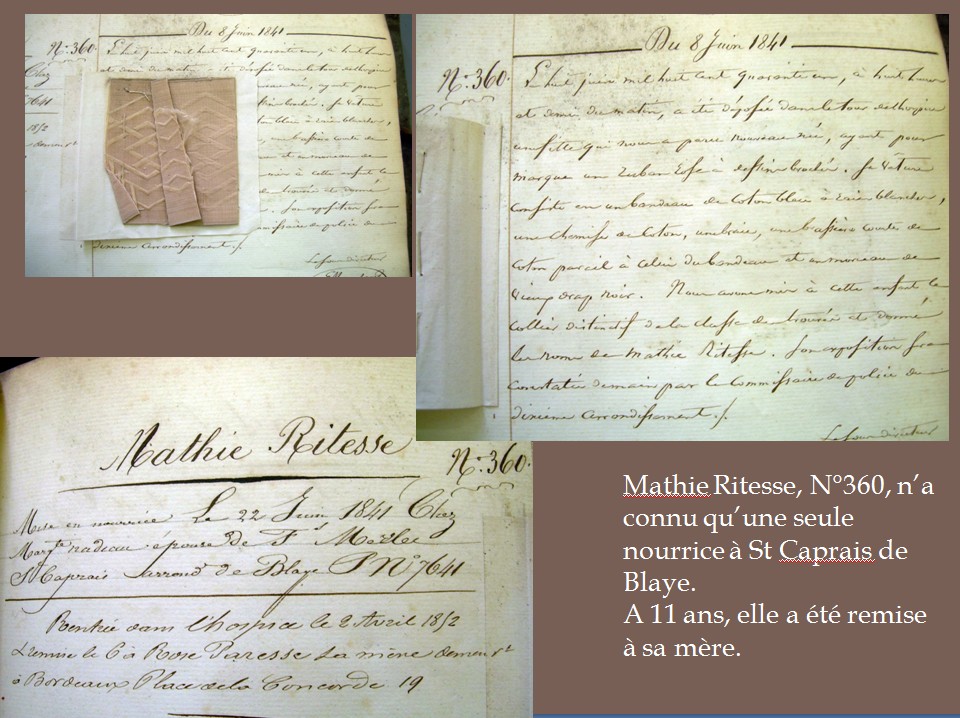 Du 8 Juin 1841
N.° 360
L'huit juin mil huit cent quarante un, à huit heures
et demi du matin
dixième arrondissement ./.
Le sous directeur
Du 8 Juin 1841
N.° 360.
L'huit juin mil huit cent quarante un, à huit heures
et demi du matin, a été déposée dans le tour de l'hospice
une fille qui nous a paru nouveau née, ayant pour
marque un ruban à dessin broché. Sa vêture
consiste en un bandeau de coton blanc à raies blanches,
une chemise de coton, une brassière courte de
coton pareil à celui du bandeau et un morceau de
vieux drap noir. Nous avons mis à cette enfant le
collier distinctif de la classe de trouvée et donné
les noms de Mathie Ritesse. Son exposition sera
constatée demain par le Commissaire de police du
dixième arrondissement ./.
Le sous directeur
Mathie Ritesse
N.° 360.
Mise en nourrice Le 22 Juin 1841 Chez
Marg.te nadeau épouse de
St Caprais arrond.t de Blaye P N.° 7641
Rentrée dans l'hospice le 2 Avril 1852
& remise le 6 à Rose Paresse sa mère demeur.t
à Bordeaux Place de la Concorde 19
Mathie Ritesse, N°360, n’a
connu qu’une seule
nourrice à St Caprais de
Blaye.
A 11 ans, elle a été remise
à sa mère.